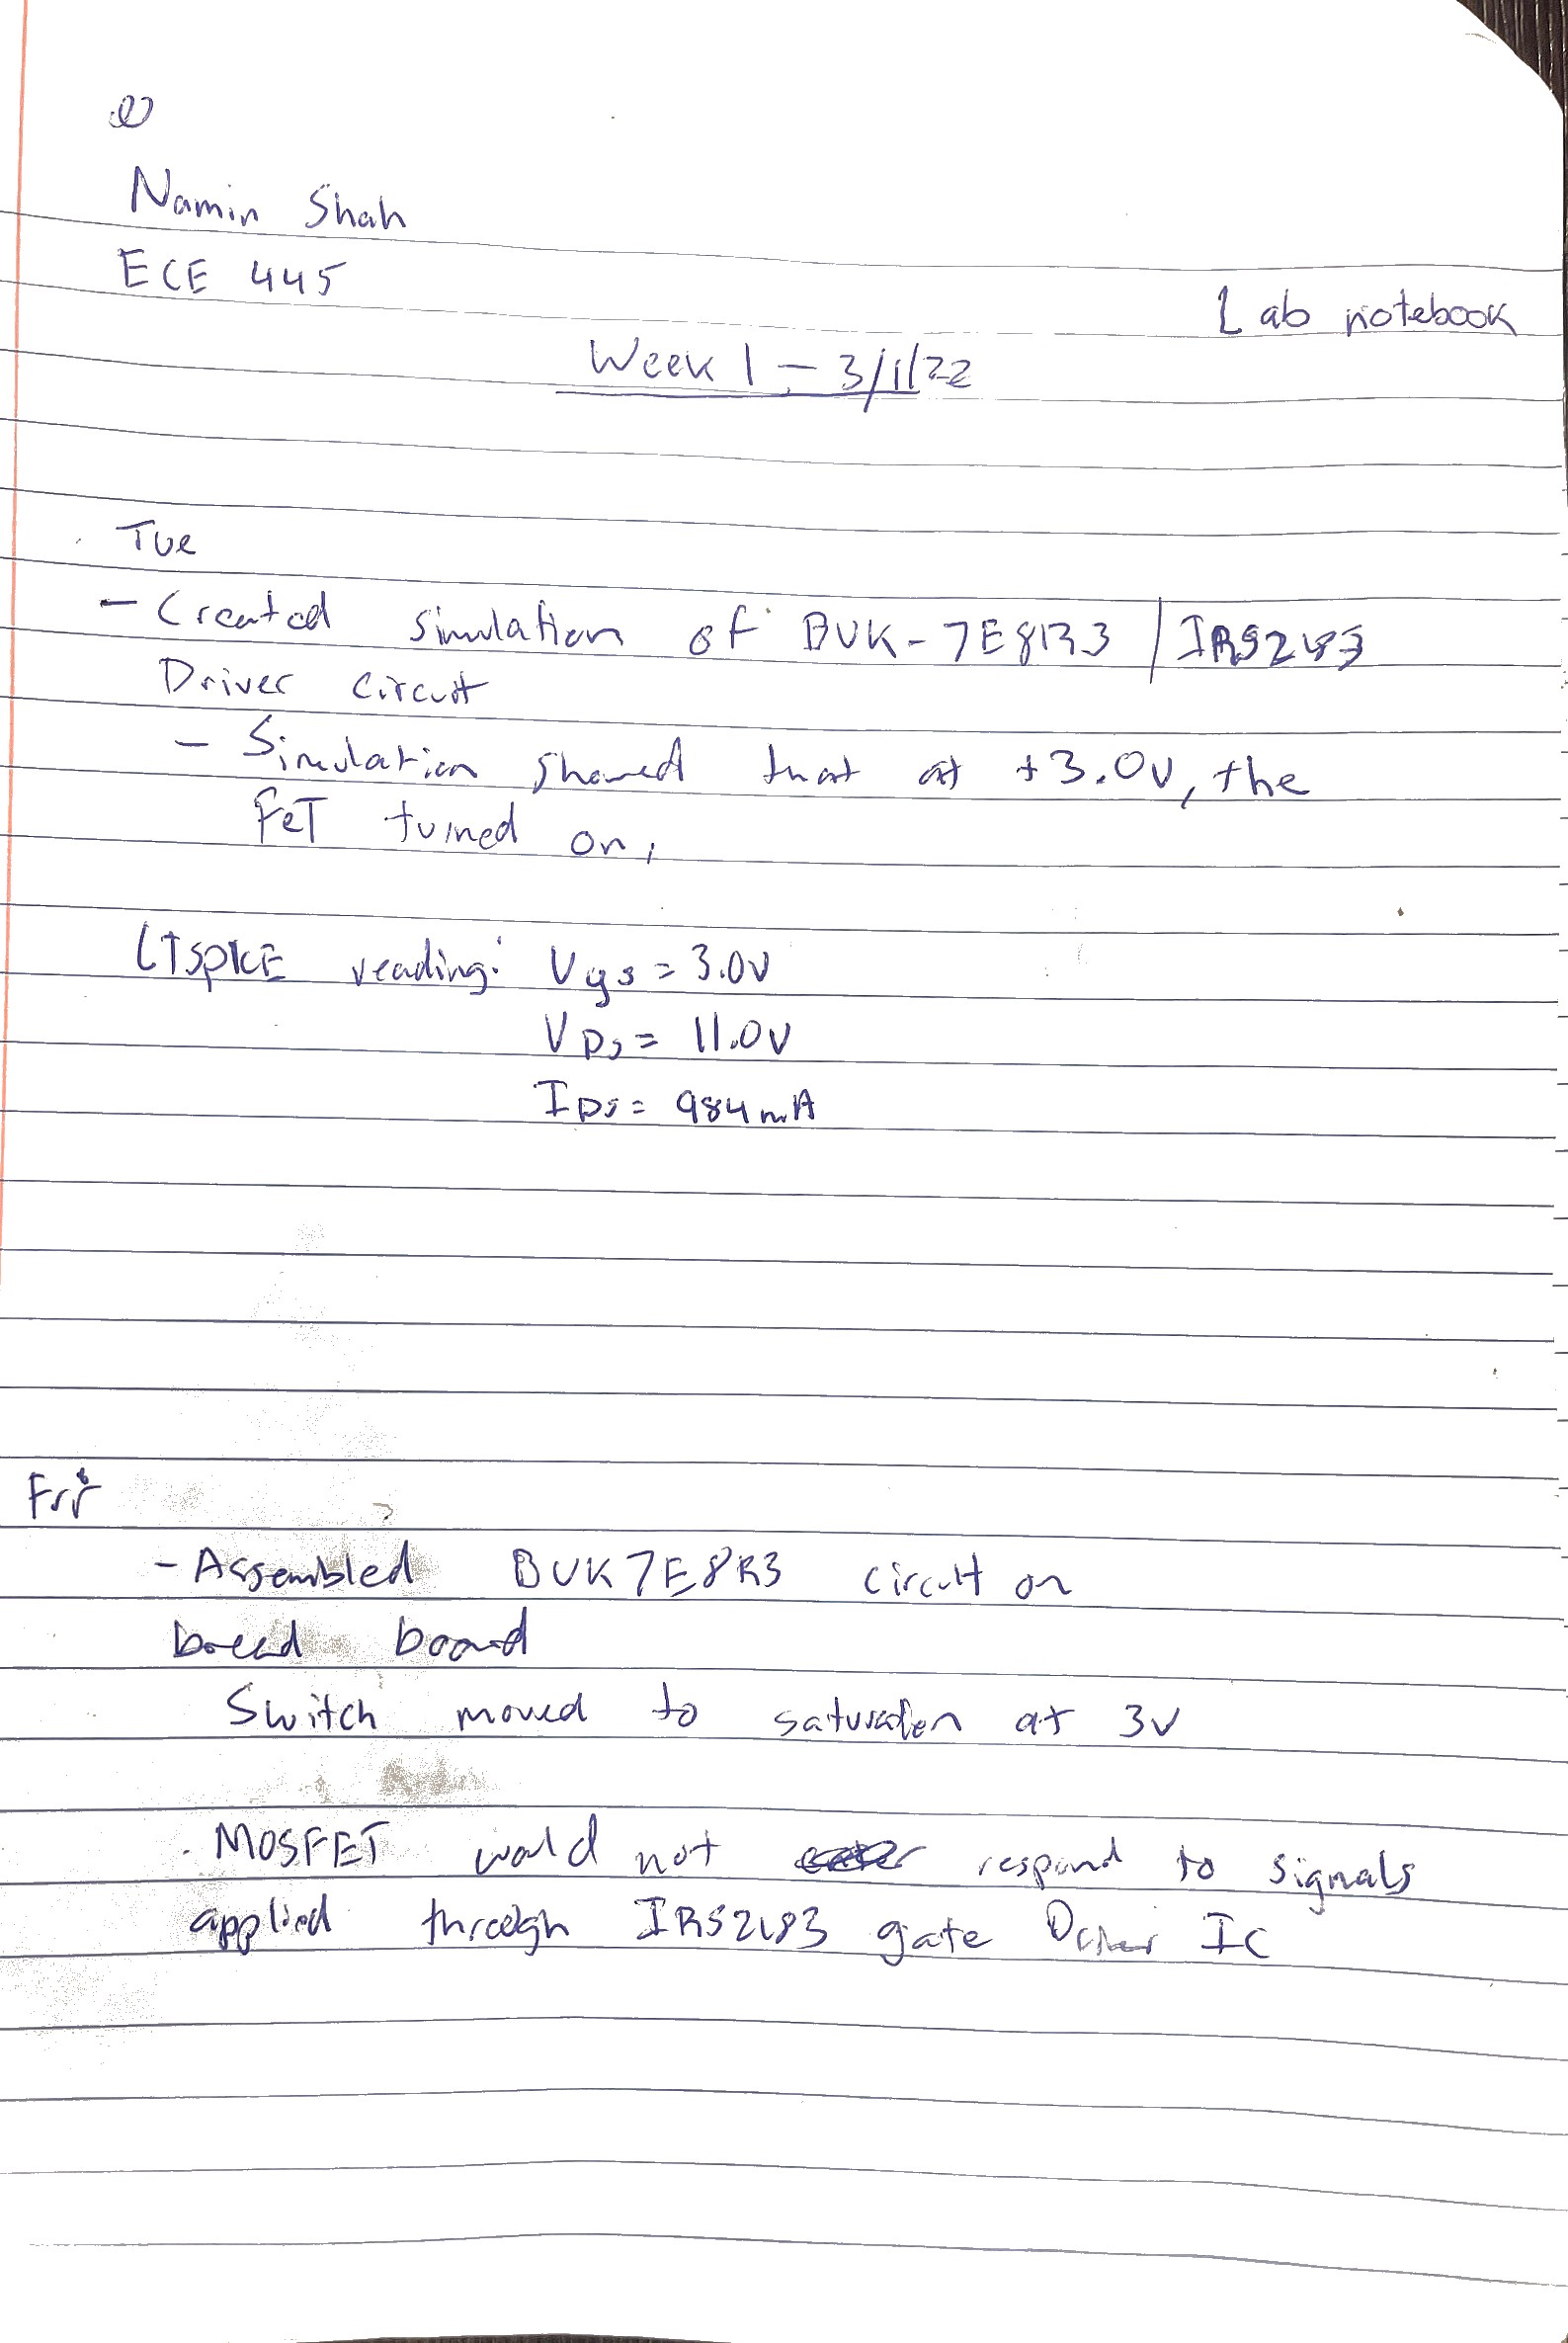 Namin Shah
ECE 445
Lab notebook
Week 1 - 3/1/22
Tue
- Created simulation of BUK-7E8R3 / IRS2183
Driver circuit
- Simulation showed that at +3.0V, the
FET turned on.
LTSPICE reading: Vgs = 3.0V
VDS = 11.0V
IDS = 984mA
Fri
- Assembled BUK7E8R3 circuit on
bread board
Switch moved to saturation at 3V
. MOSFET would not respond to signals
applied through IRS2183 gate Driver IC